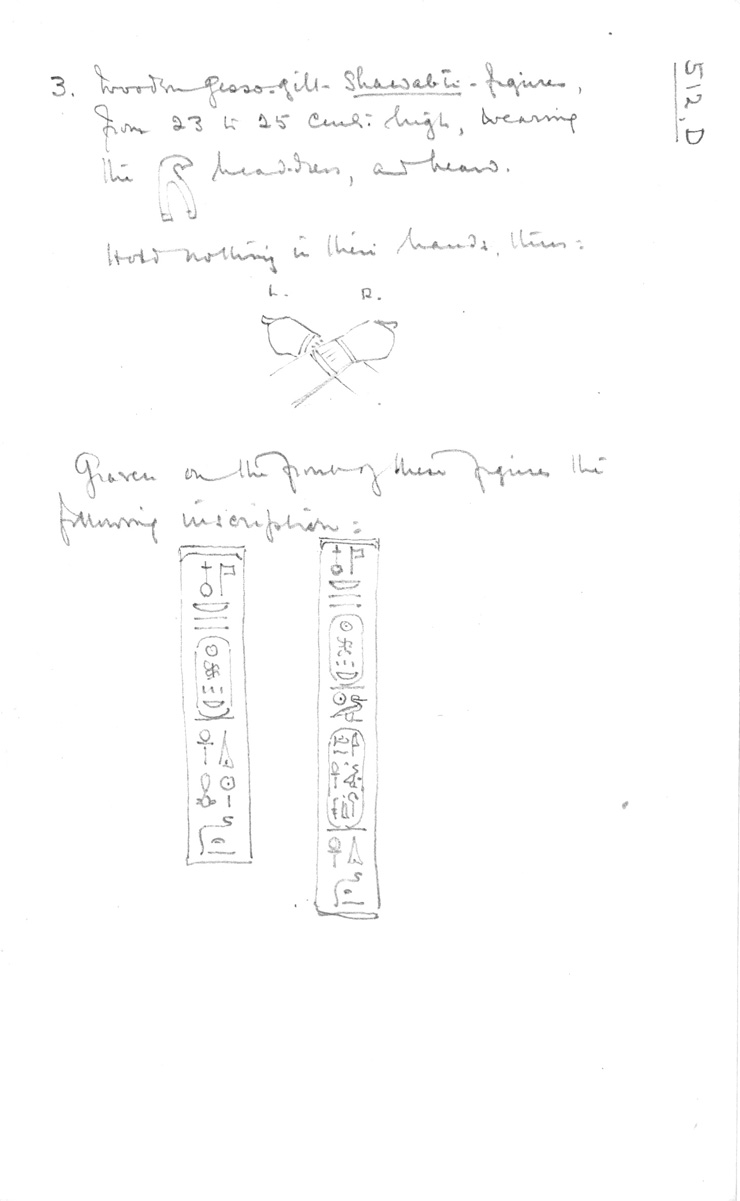 512.D
3. Wooden gesso-gilt Shawabti-figures,
from 23 to 25 cent: high, wearing
the head-dress, and beard.
Hold nothing in their hands, thus:
L. R.
Graven on the front of these figures the
following inscription: